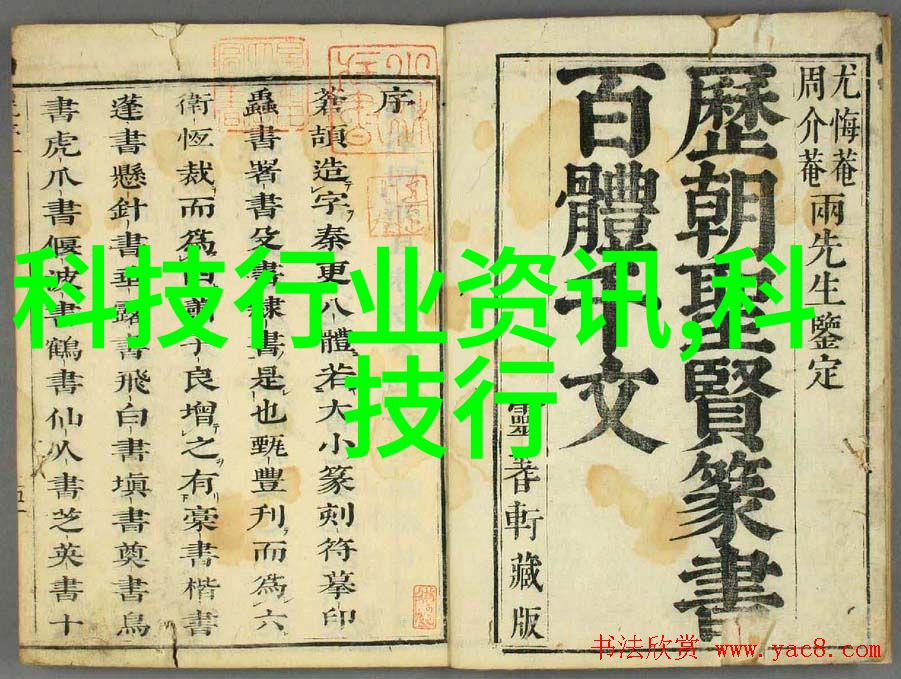 尤悔菴
周介菴
兩先生鑒定
歷朝聖賢篆書
百體千文
靈着軒藏版
序
蒼頡造字秦更八體若大小篆刻符摹印
蟲書署書殳書隸書是也甄豐刋而爲六
衛恆裁而爲四蕭子良增之有槀書楷書
蓬書懸針書垂露書飛白書塡書奠書鳥
書虎爪書偃波書鶴書仙人書芝英書十
科技行业资讯,科
技行
书法欣赏 www.yac8.com